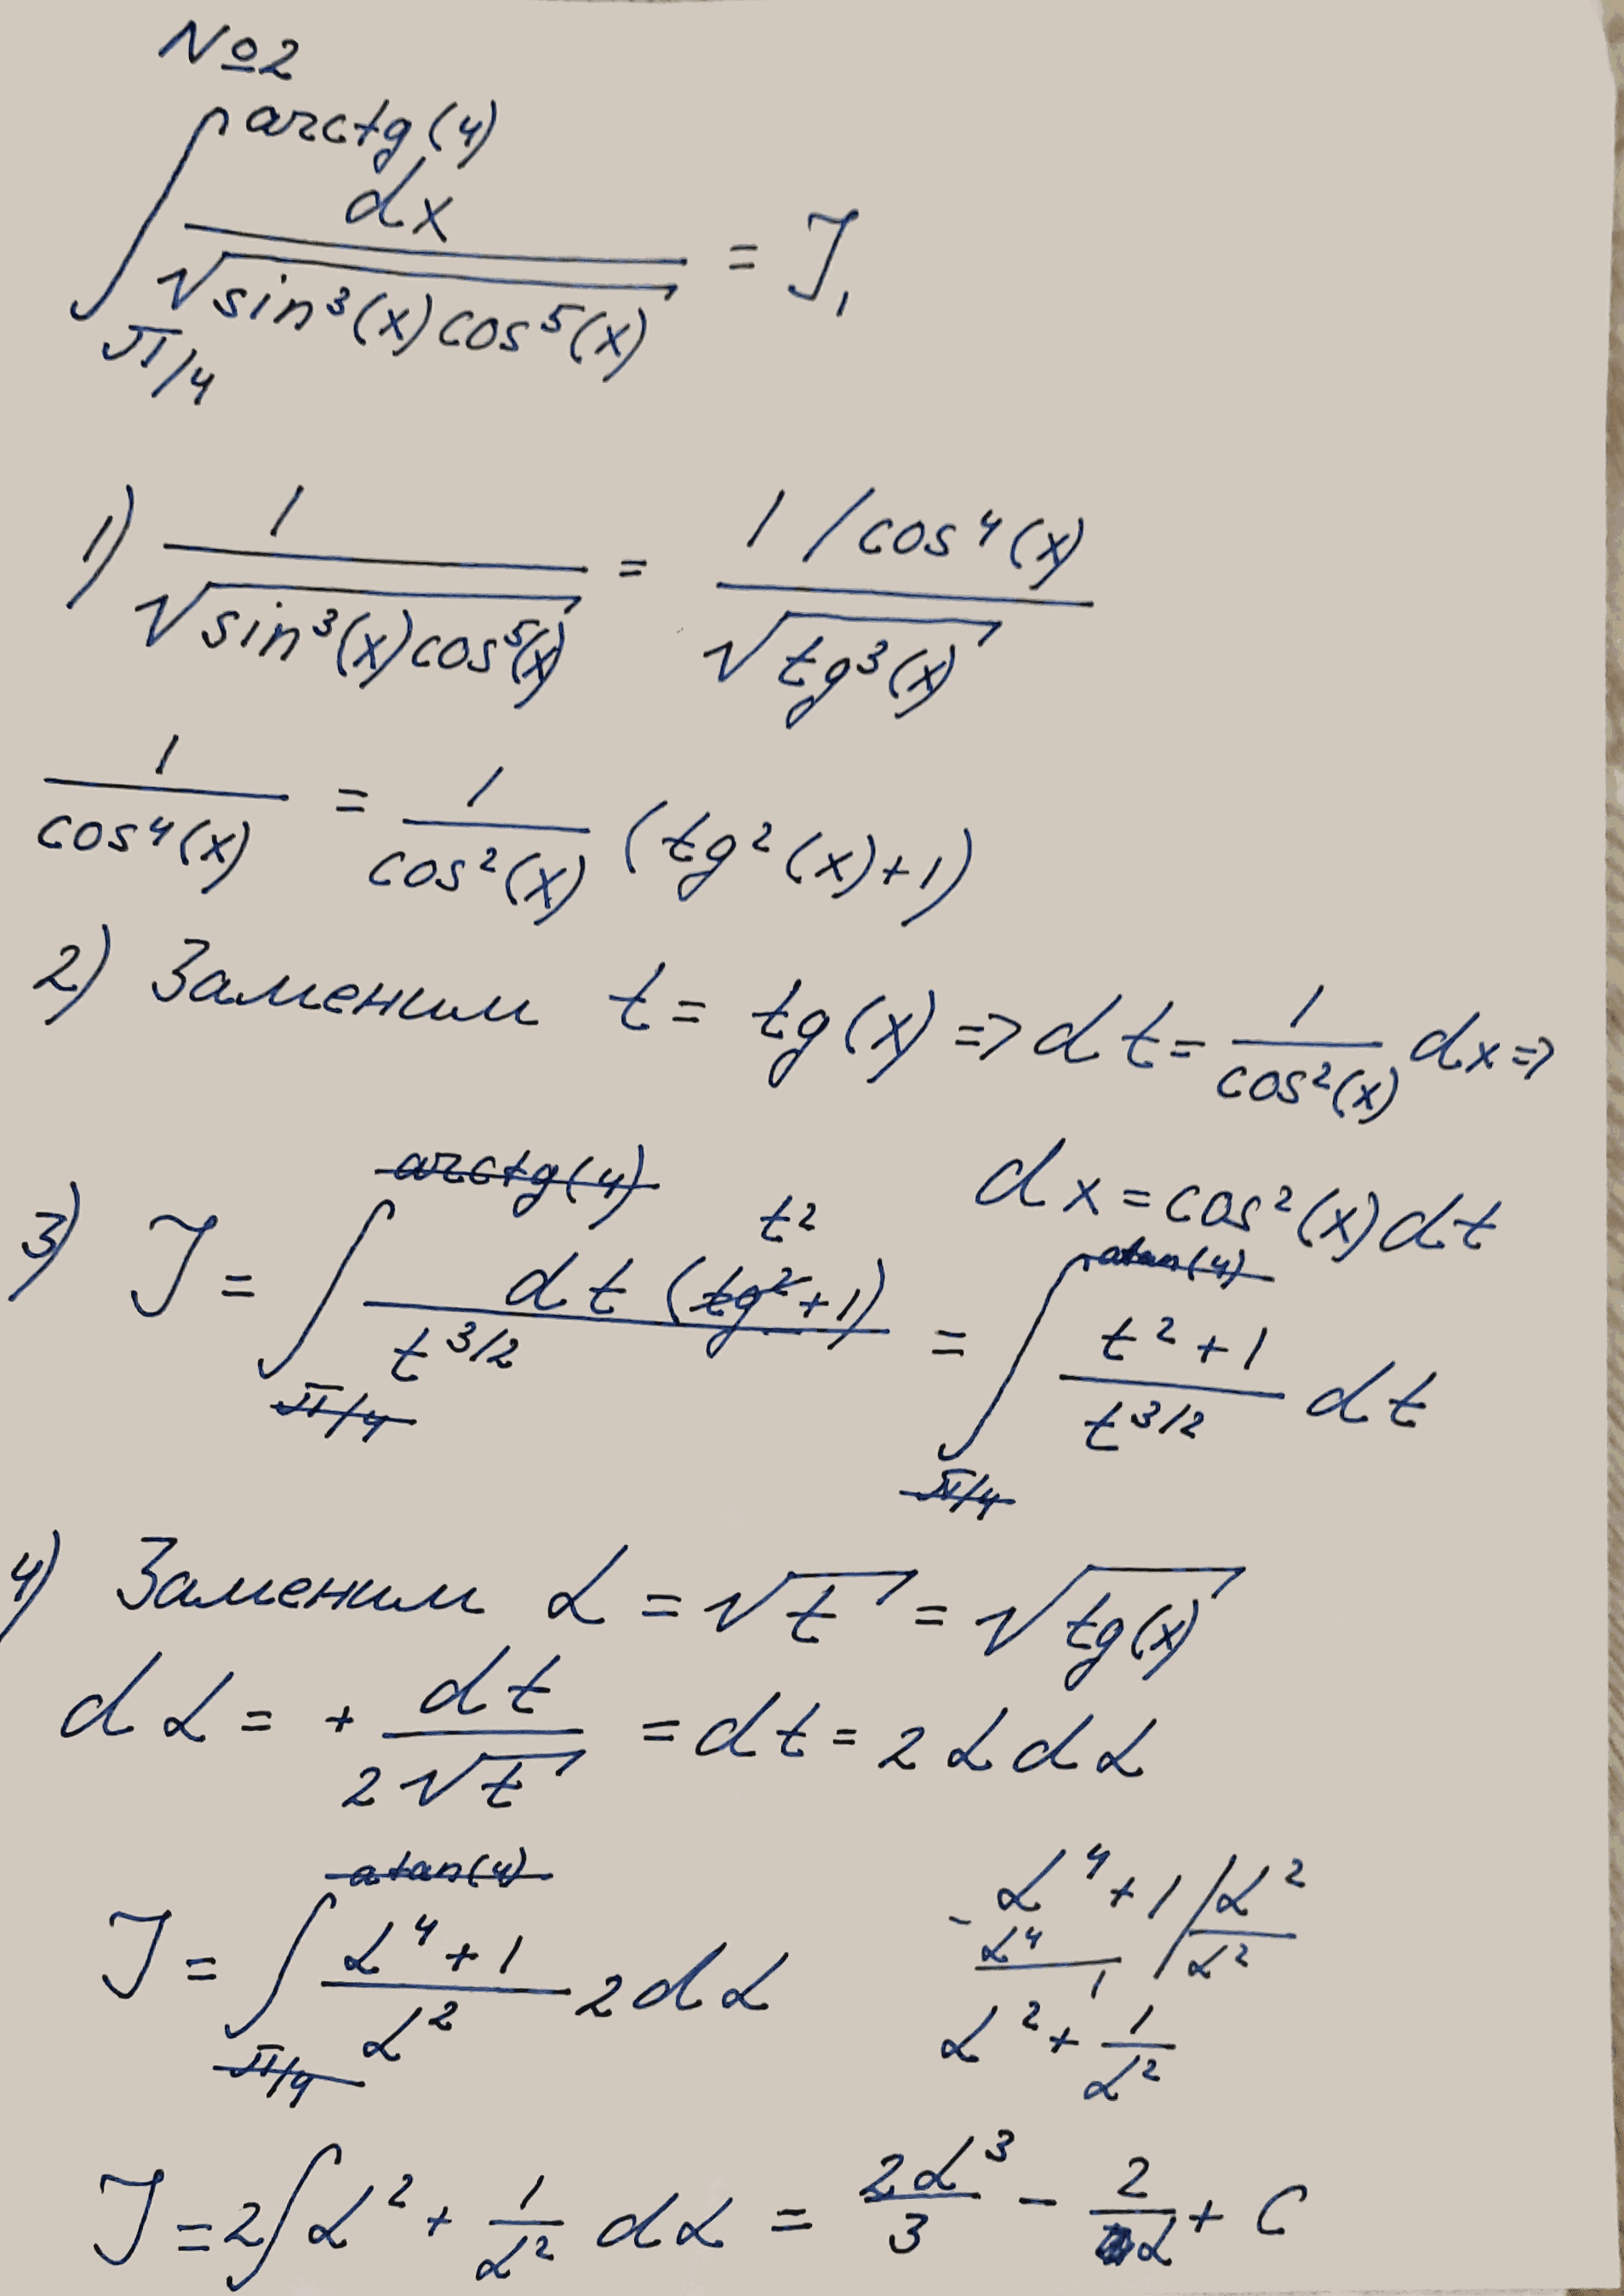 №2
∫_{π/4}^{arctg(4)} dx / √(sin³(x)cos⁵(x)) = J₁
1) 1 / √(sin³(x)cos⁵(x)) = (1/cos⁴(x)) / √(tg³(x))
1/cos⁴(x) = 1/cos²(x) (tg²(x)+1)
2) Заменим t = tg(x) => dt = 1/cos²(x) dx =>
dx = cos²(x)dt
3) J = ∫_{~~π/4~~}^{~~arctg(4)~~} dt (~~tg²~~ t² +1) / t^{3/2} = ∫_{~~π/4~~}^{~~atan(4)~~} (t²+1)/t^{3/2} dt
4) Заменим α = √t = √tg(x)
dα = + dt/(2√t) = dt = 2αdα
J = ∫_{~~π/4~~}^{~~atan(4)~~} (α⁴+1)/α² 2dα
α⁴+1 | α²
- α⁴ | α²
1
α² + 1/α²
J = 2∫α² + 1/α² dα = 2α³/3 - 2/α + C